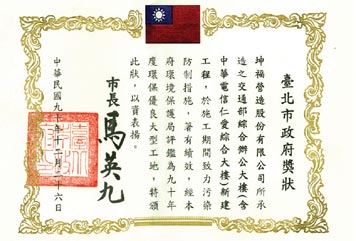 臺北市政府獎狀
坤福營造股份有限公司所承
造之交通部綜合辦公大樓(含
中華電信仁愛綜合大樓)新建
工程，於施工期間致力污染
防制措施，著有績效，經本
府環境保護局評鑑為九十年
度環保優良大型工地，特頒
此狀，以資表揚。
市長 馬英九
中華民國九十年十二月二十六日